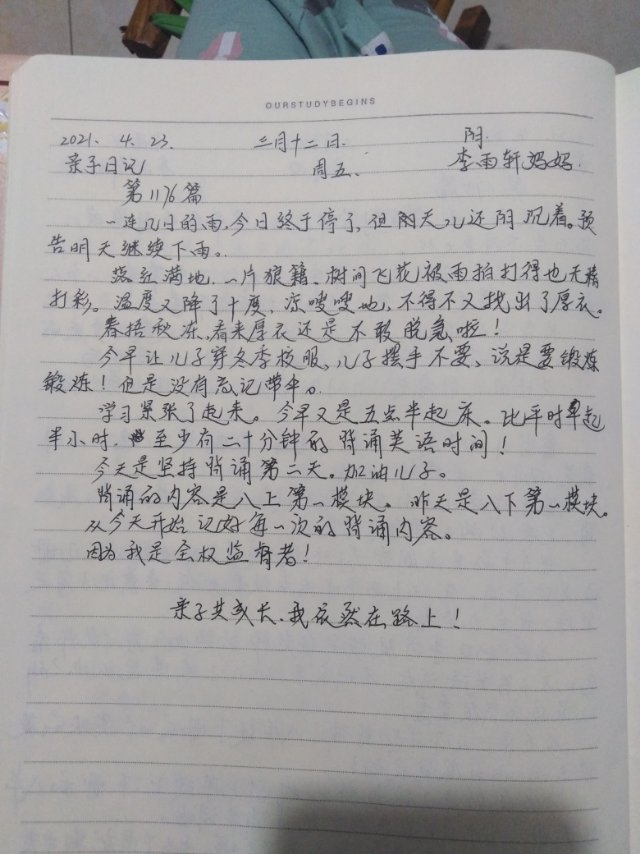 OURSTUDYBEGINS
2021. 4. 23. 三月十二日. 阴.
亲子日记 周五. 李雨轩妈妈.
第1176篇
一连几日的雨,今日终于停了,但阴天儿还阴沉着。预
告明天继续下雨。
落红满地,一片狼籍、树间飞花被雨拍打得也无精
打彩。温度又降了十度,凉嗖嗖地,不得不又找出了厚衣。
春捂秋冻,看来厚衣还是不敢脱急啦!
今早让儿子穿冬季校服,儿子摆手不要、说是要锻炼
锻炼!但是没有忘记带伞。
学习紧张了起来。今早又是五点半起床。比平时早起
半小时,至少有二十分钟的背诵英语时间!
今天是坚持背诵第二天。加油儿子。
背诵的内容是八上第一模块。昨天是八下第一模块。
从今天开始记好每一次的背诵内容。
因为我是全权监督者!
亲子共成长、我依然在路上!